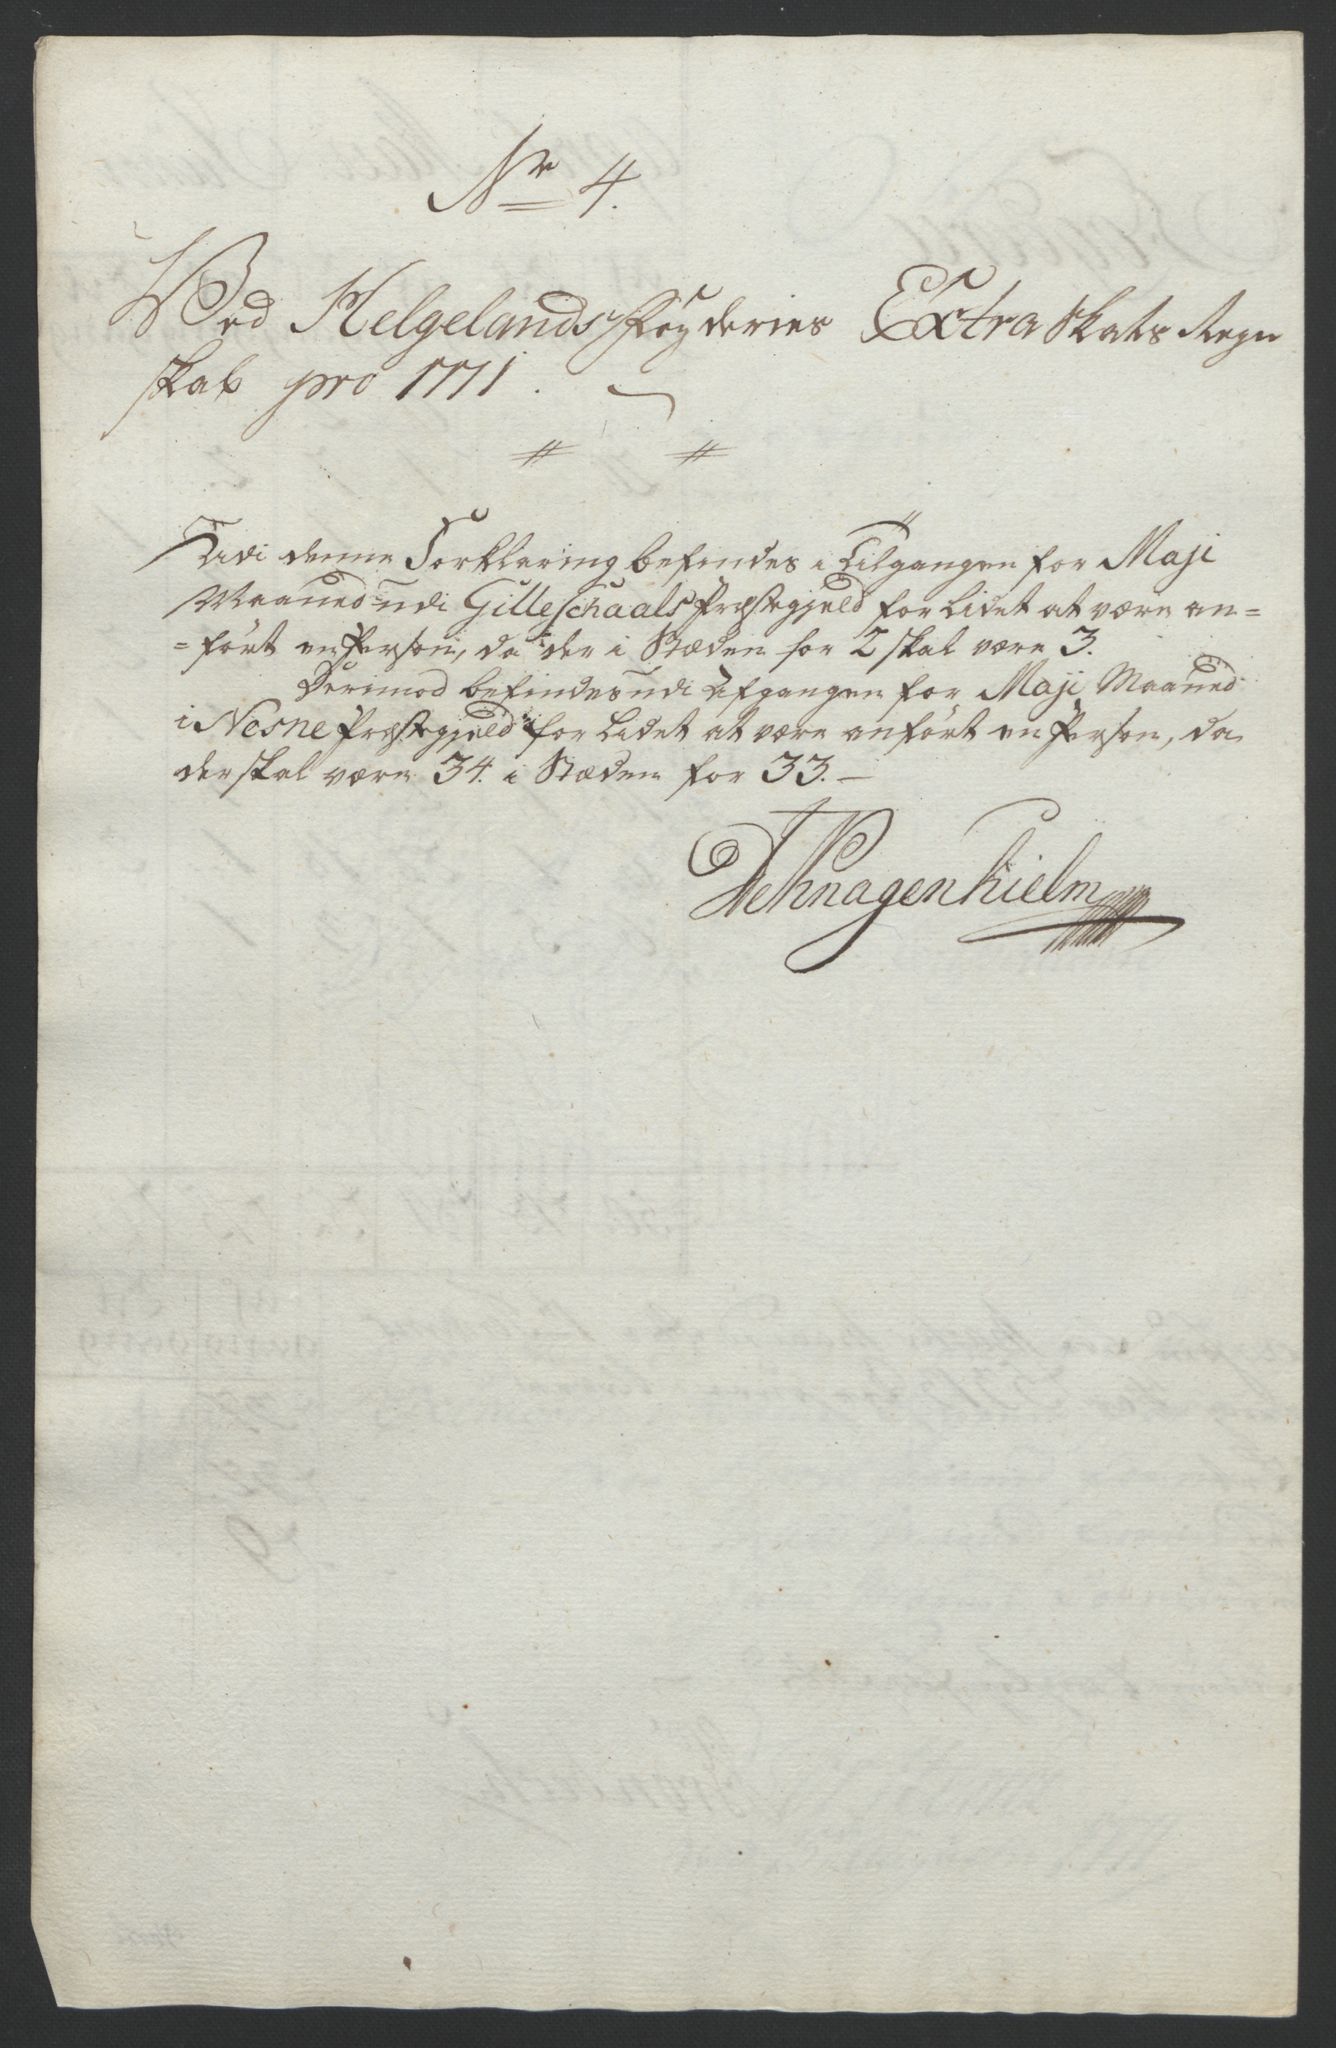 No 4.
Ved Helgelands Fögderies Extra Skats Regn
skab pro 1771.
Udi denne Forklaring befindes i Tilgangen for Maji
Maaned udi Gilleschaals Præstegjeld for lidet at være an=
=fört en Person, da der i Stæden for 2 skal være 3.
Derimod befindes udi Afgangen for Maji Maaned
i Nesne Præstegjeld for lidet at være anfört en Person, da
der skal være 34. i Stæden for 33.
Knagenhielm